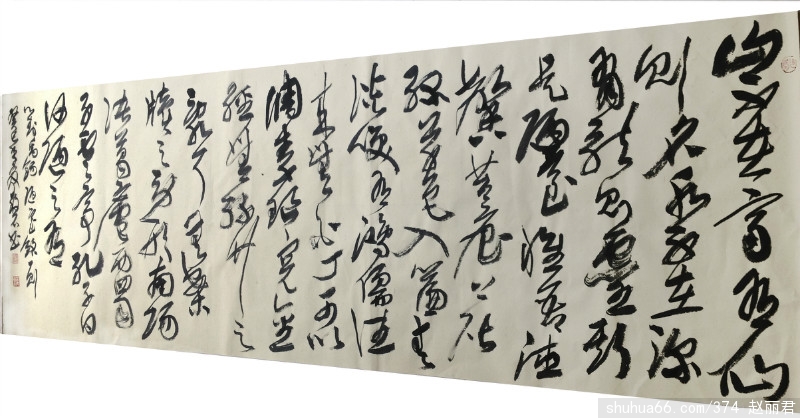 山不在高有仙
则名水不在深
有龙则灵斯
是陋室惟吾德
馨苔痕上阶
绿草色入帘青
谈笑有鸿儒往
来无白丁可以
调素琴阅金
经无丝竹之
乱耳无案
牍之劳形南阳
诸葛庐西蜀
子云亭孔子曰
何陋之有
刘禹锡陋室铭
shuhua66.com/374 赵丽君